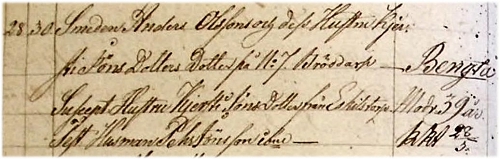 28. 30. Smeden Anders Olssons och dess Hustru Kjer-
sti Jöns Dotters Dotter på No 7 Bröddarp — Bengta
Suscept Hustru Kjersti Jöns Dotter från Eskilstorp Modr. 39 år
Test. Husman Pehr Jönsson ibm — kkt 28/5.